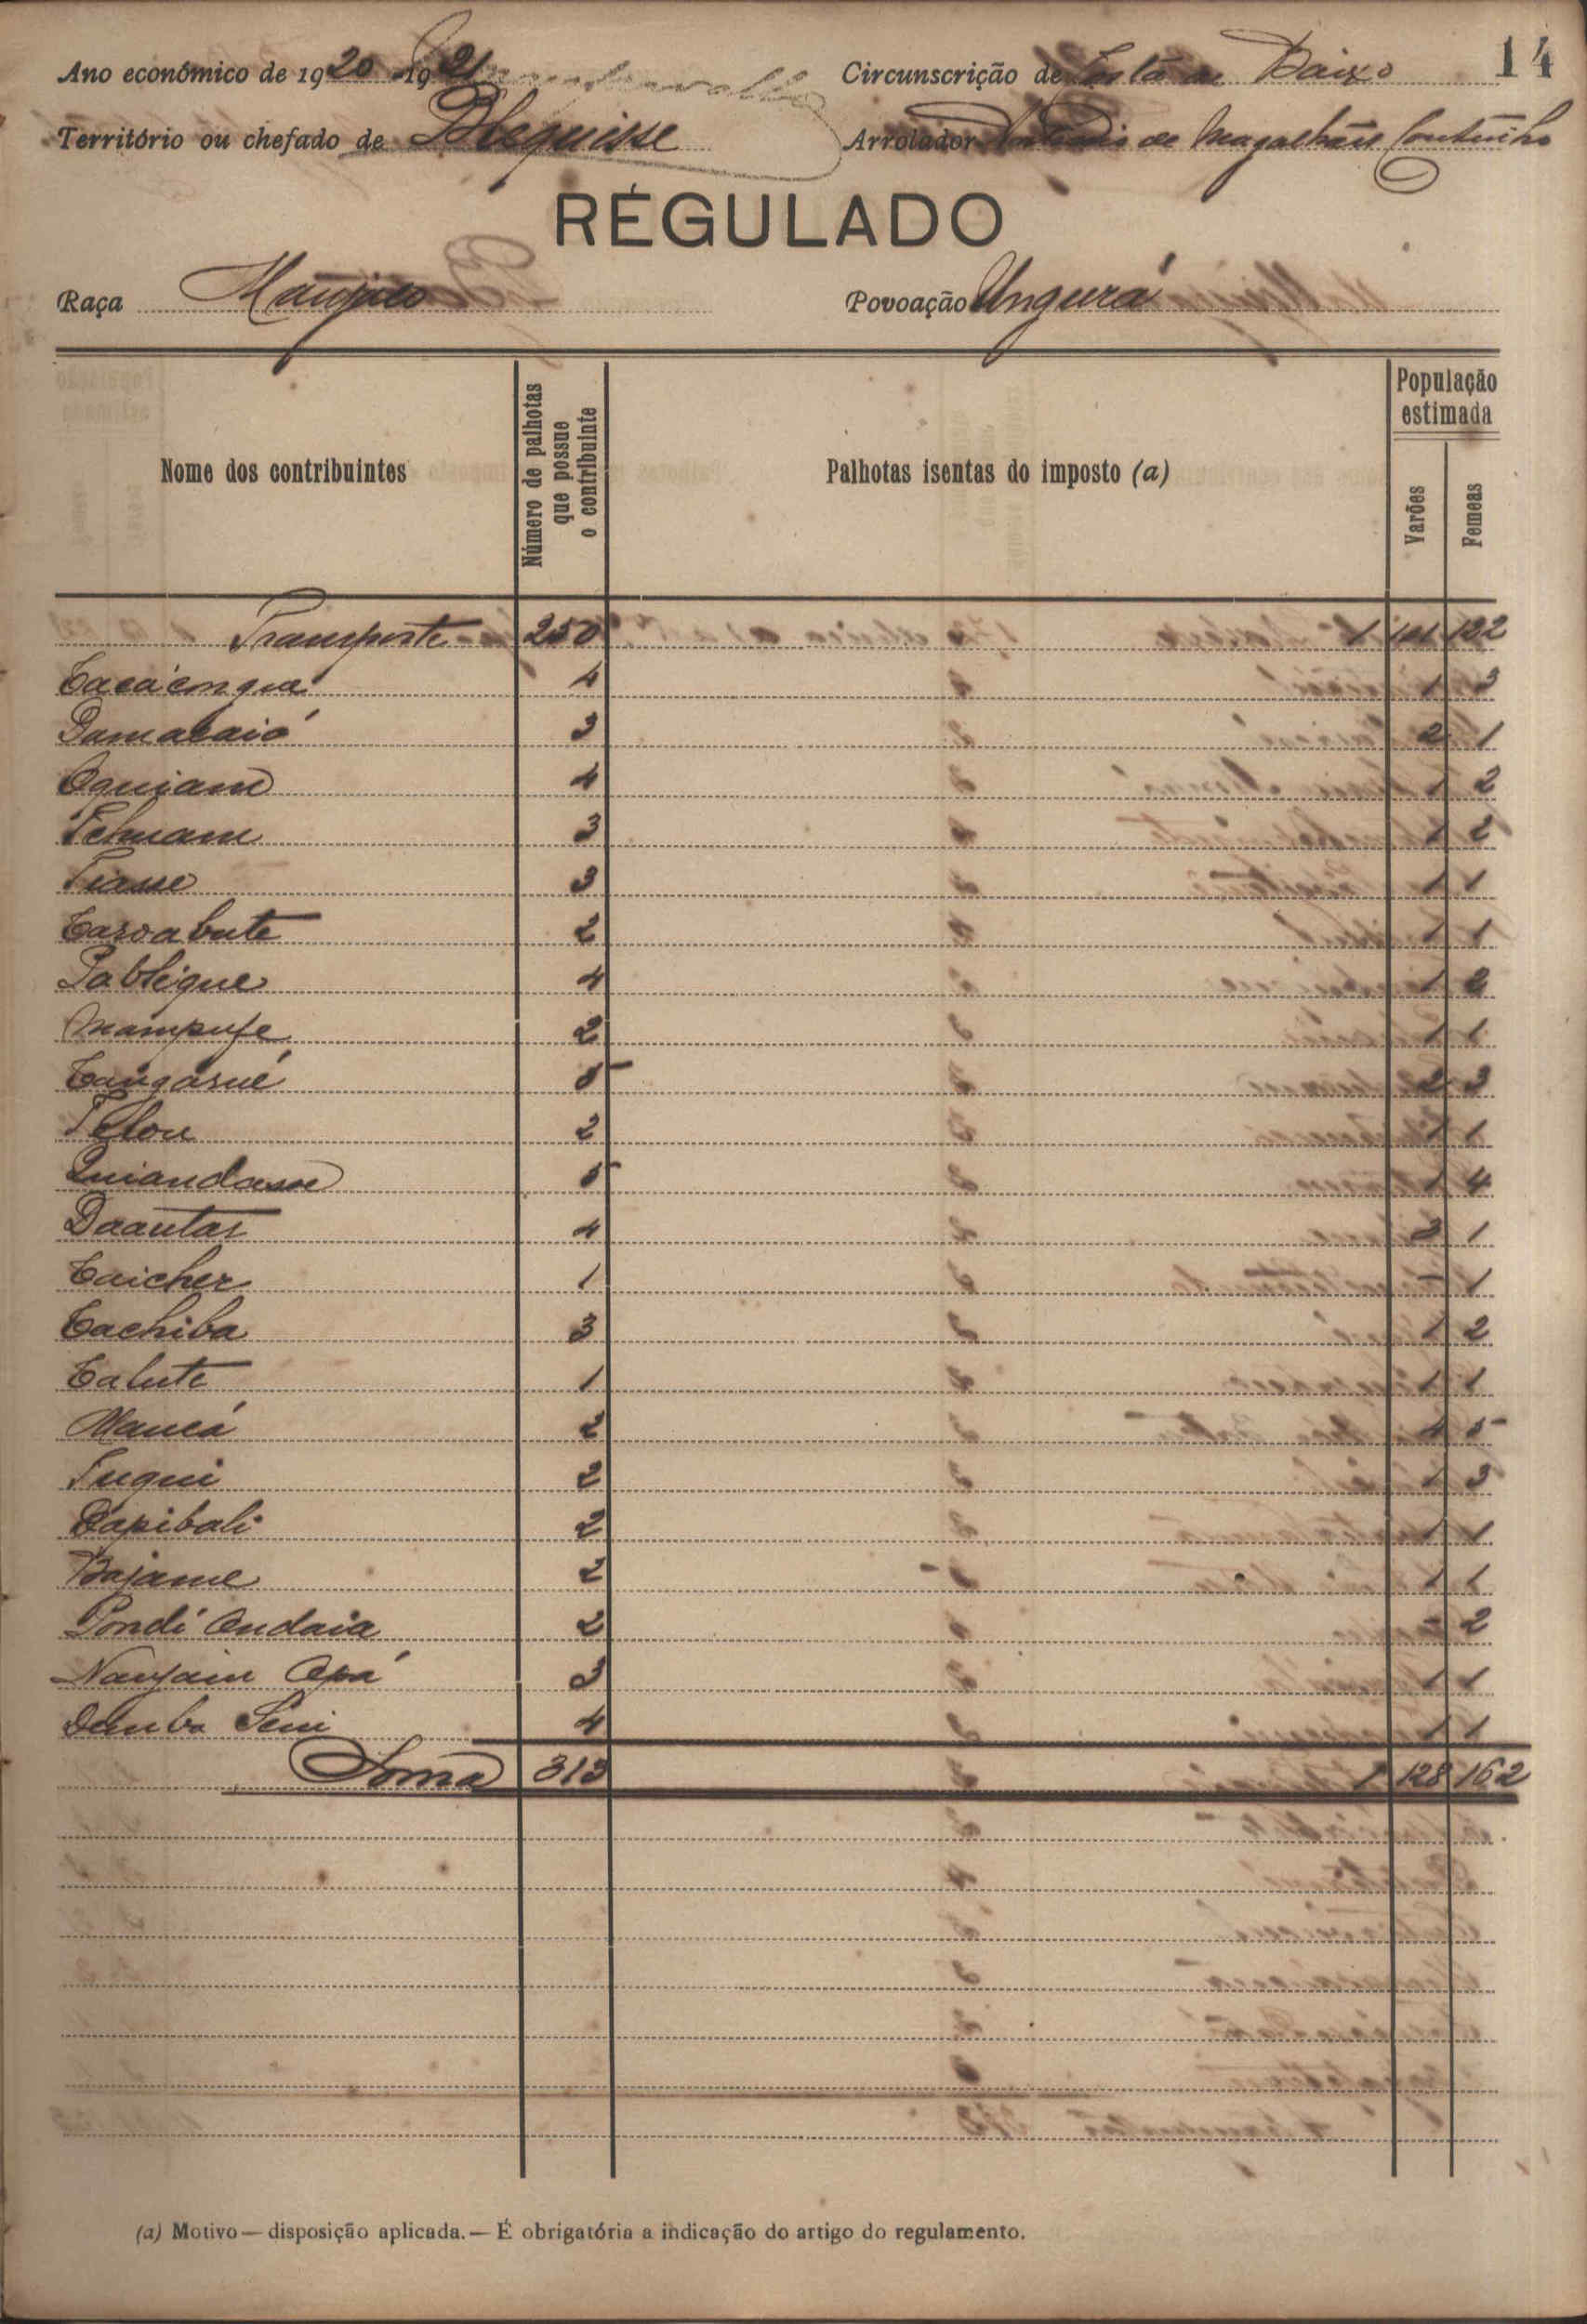 14
Ano económico de 1920-1921 Circunscrição de Costa de Baixo
Território ou chefado de Blequisse Arrolador de Magalhães Coutinho
RÉGULADO
Raça Manjaco Povoação Ungurá
Nome dos contribuintes Número de palhotas que possue o contribuinte Palhotas isentas do imposto (a) População estimada Varões Femeas
Transporte 250 1 101 122
Cacácongue 4 1 3
Damacaió 3 2 1
Oquiam 4 1 2
Tchuam 3 1 2
Tiasse 3 1 1
Caroabute 2 1 1
Pablique 4 1 2
Mampufe 2 1 1
Cangasué 5 2 3
Telou 2 1 1
Quiandasse 5 1 4
Daautar 4 3 1
Caicher 1 - 1
Cachiba 3 1 2
Calute 1 1 1
Mancá 2 4 5
Tuqui 2 1 3
Capibali 2 1 1
Bajame 2 1 1
Pondi Andaia 2 - 2
Naujain Apá 3 1 1
Demba Seni 4 1 1
Soma 313 1 128 162
(a) Motivo — disposição aplicada. — É obrigatória a indicação do artigo do regulamento.